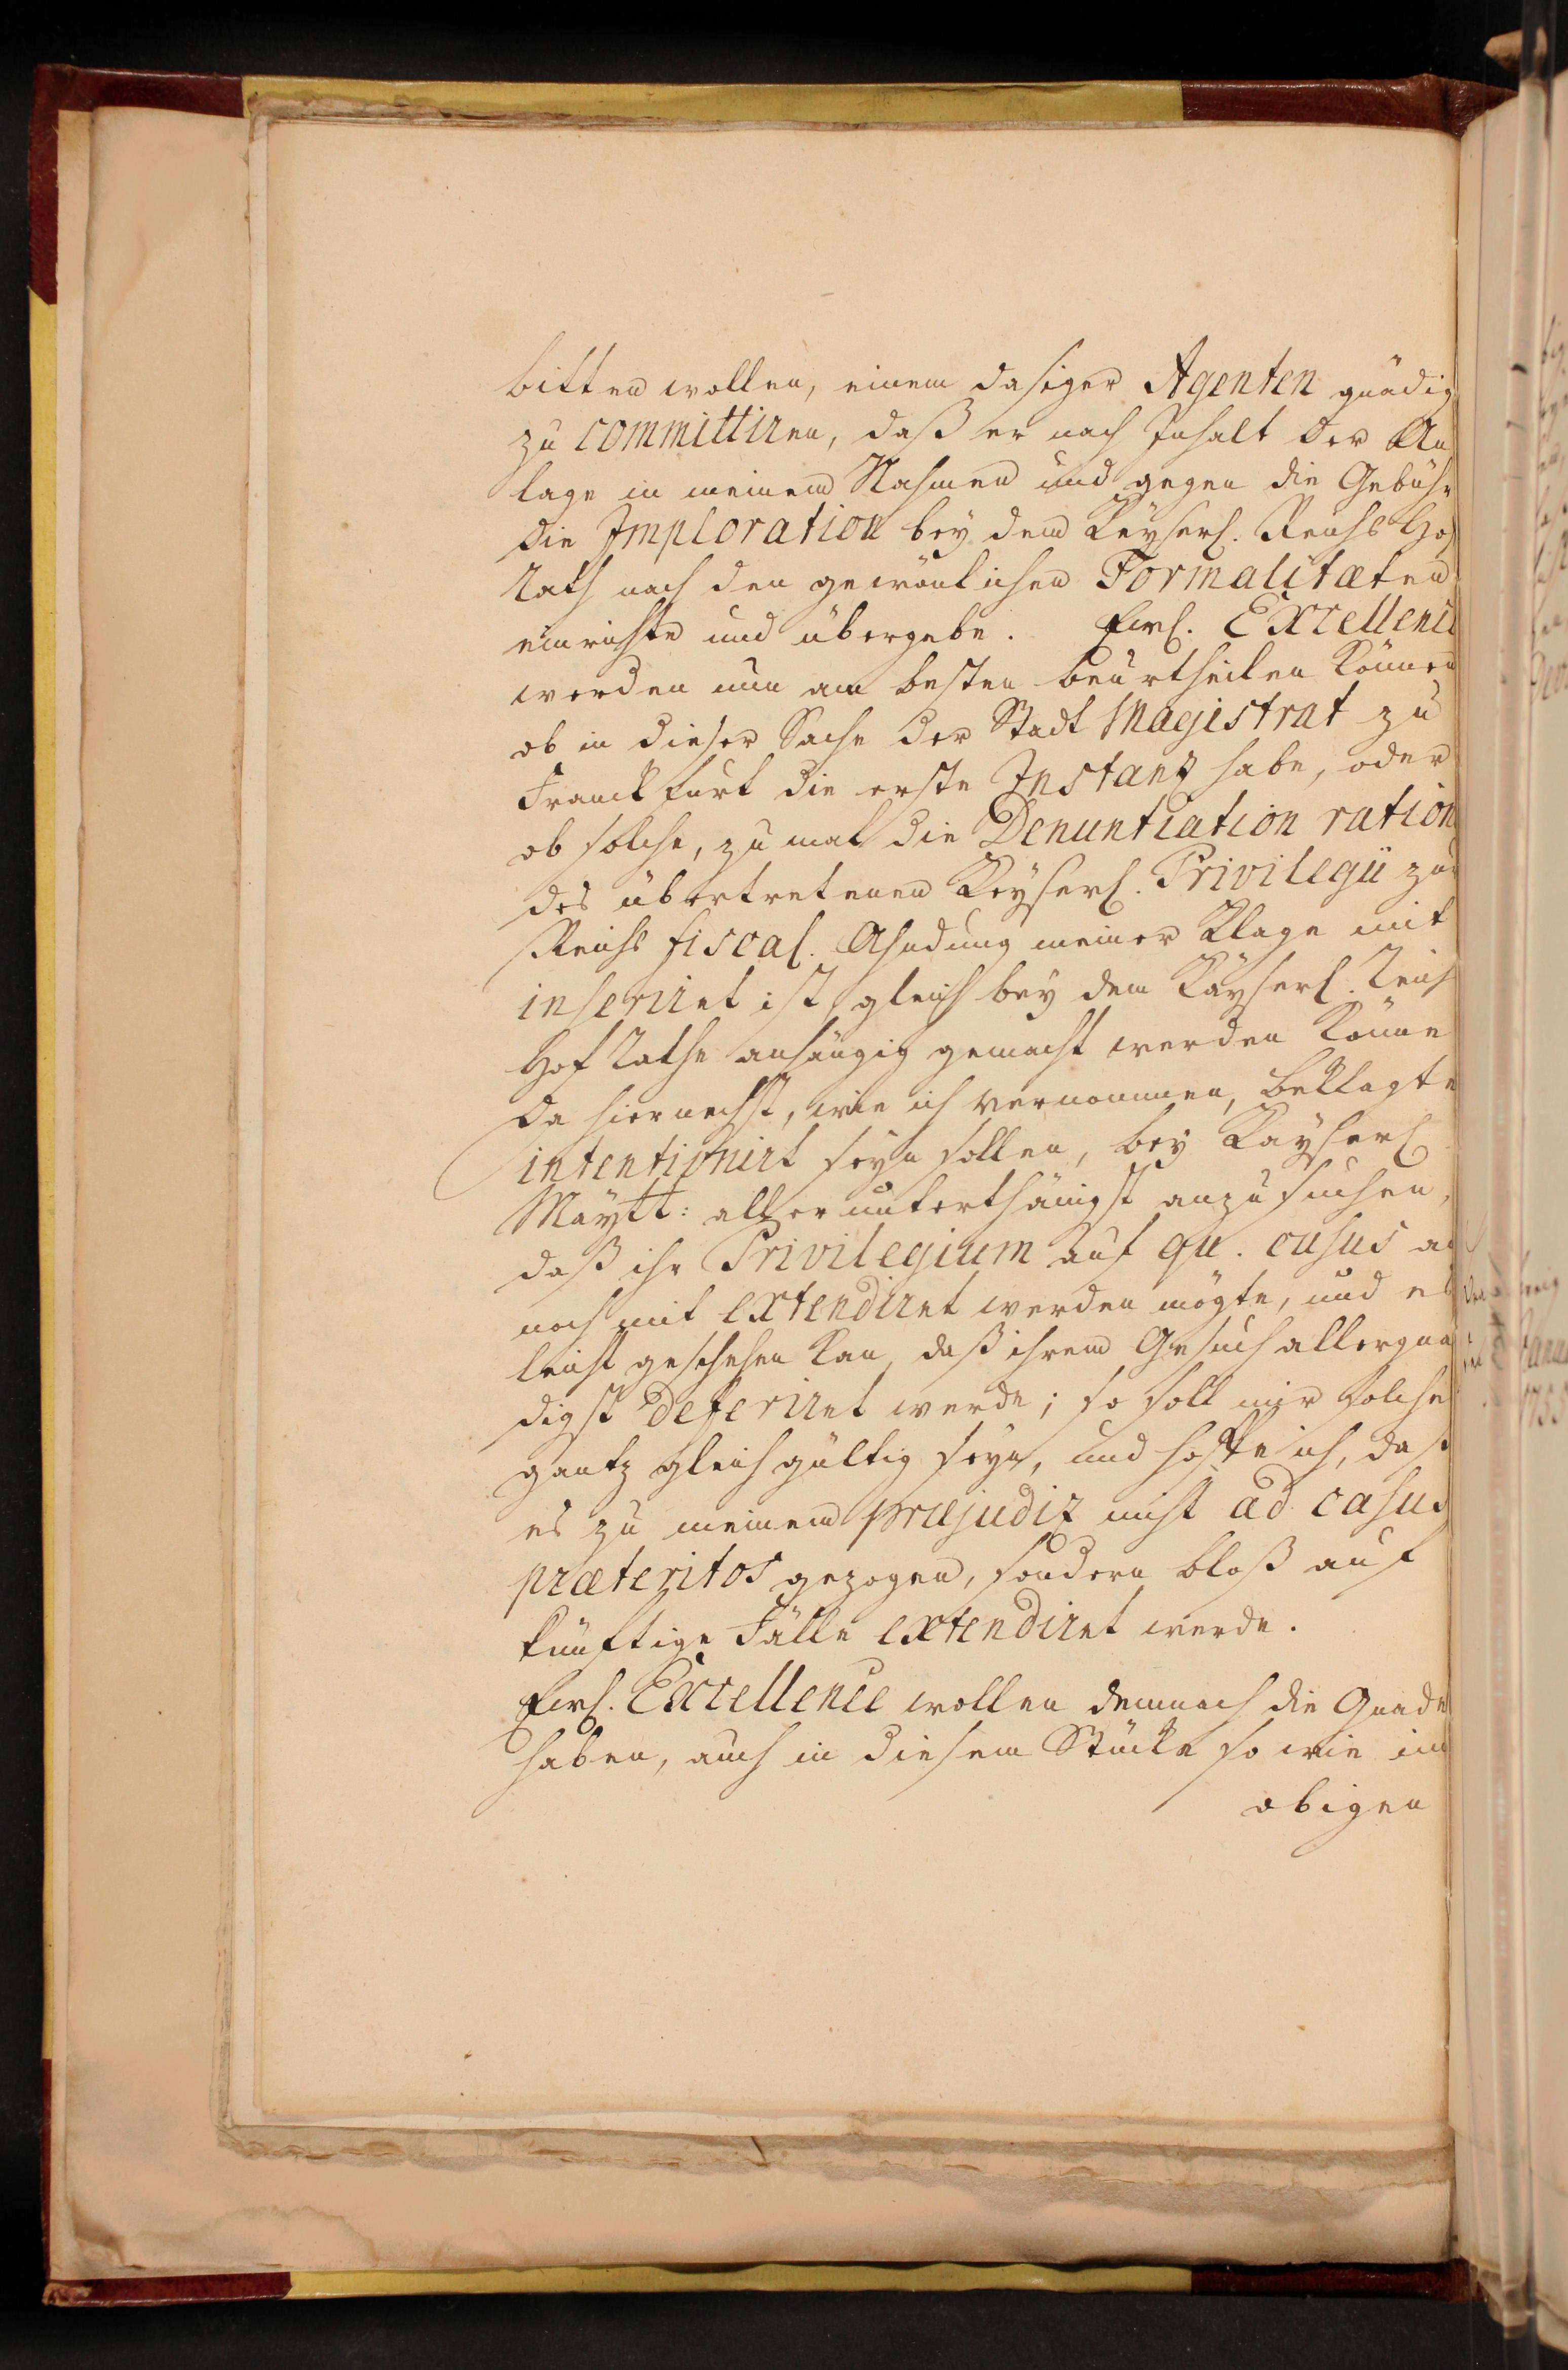 bitten wollen, einem dasigen Agenten gnädig
zu committiren, daß er nach Inhalt der An
lage in meinem Nahmen und gegen die Gebühr
die Imploration bey dem Keyserl. Reichs Hof
Rath nach den gewönlichen Formalitæten
einrichte und übergebe. Ewl. Excellence
werden nun am besten beurtheilen können
ob in dieser Sache der Stadt Magistrat zu
Franckfurt die erste Instanz habe, oder
ob solche, zumal die Denuntiation ration
des übertretenen Keyserl. Privilegii zur
Reichs fiscal. Ahndung meiner Klage mit
inseriret ist, gleich bey dem Kayserl. Reich
Hof Rathe anhängig gemacht werden könne
Da hiernechst, wie ich vernommen, Beklagte
intentionirt seyn sollen, bey Kayserl.
Maytt: allerunterthänigst anzusuchen,
daß ihr Privilegium auf qu. casus a
noch mit extendiret werden mögte, und es
leicht geschehen kan, daß ihrem Gesuch allergnä
digst deferiret werde; so soll mir solches
gantz gleichgültig seyn, und hoffe ich, daß
es zu meinem præjudiz nicht ad casus
præteritos gezogen, sondern bloß auf
künftige Fälle extendiret werde.
Ewl. Excellence wollen demnach die Gnade
haben, auch in diesem Stücke so wie im
obigen